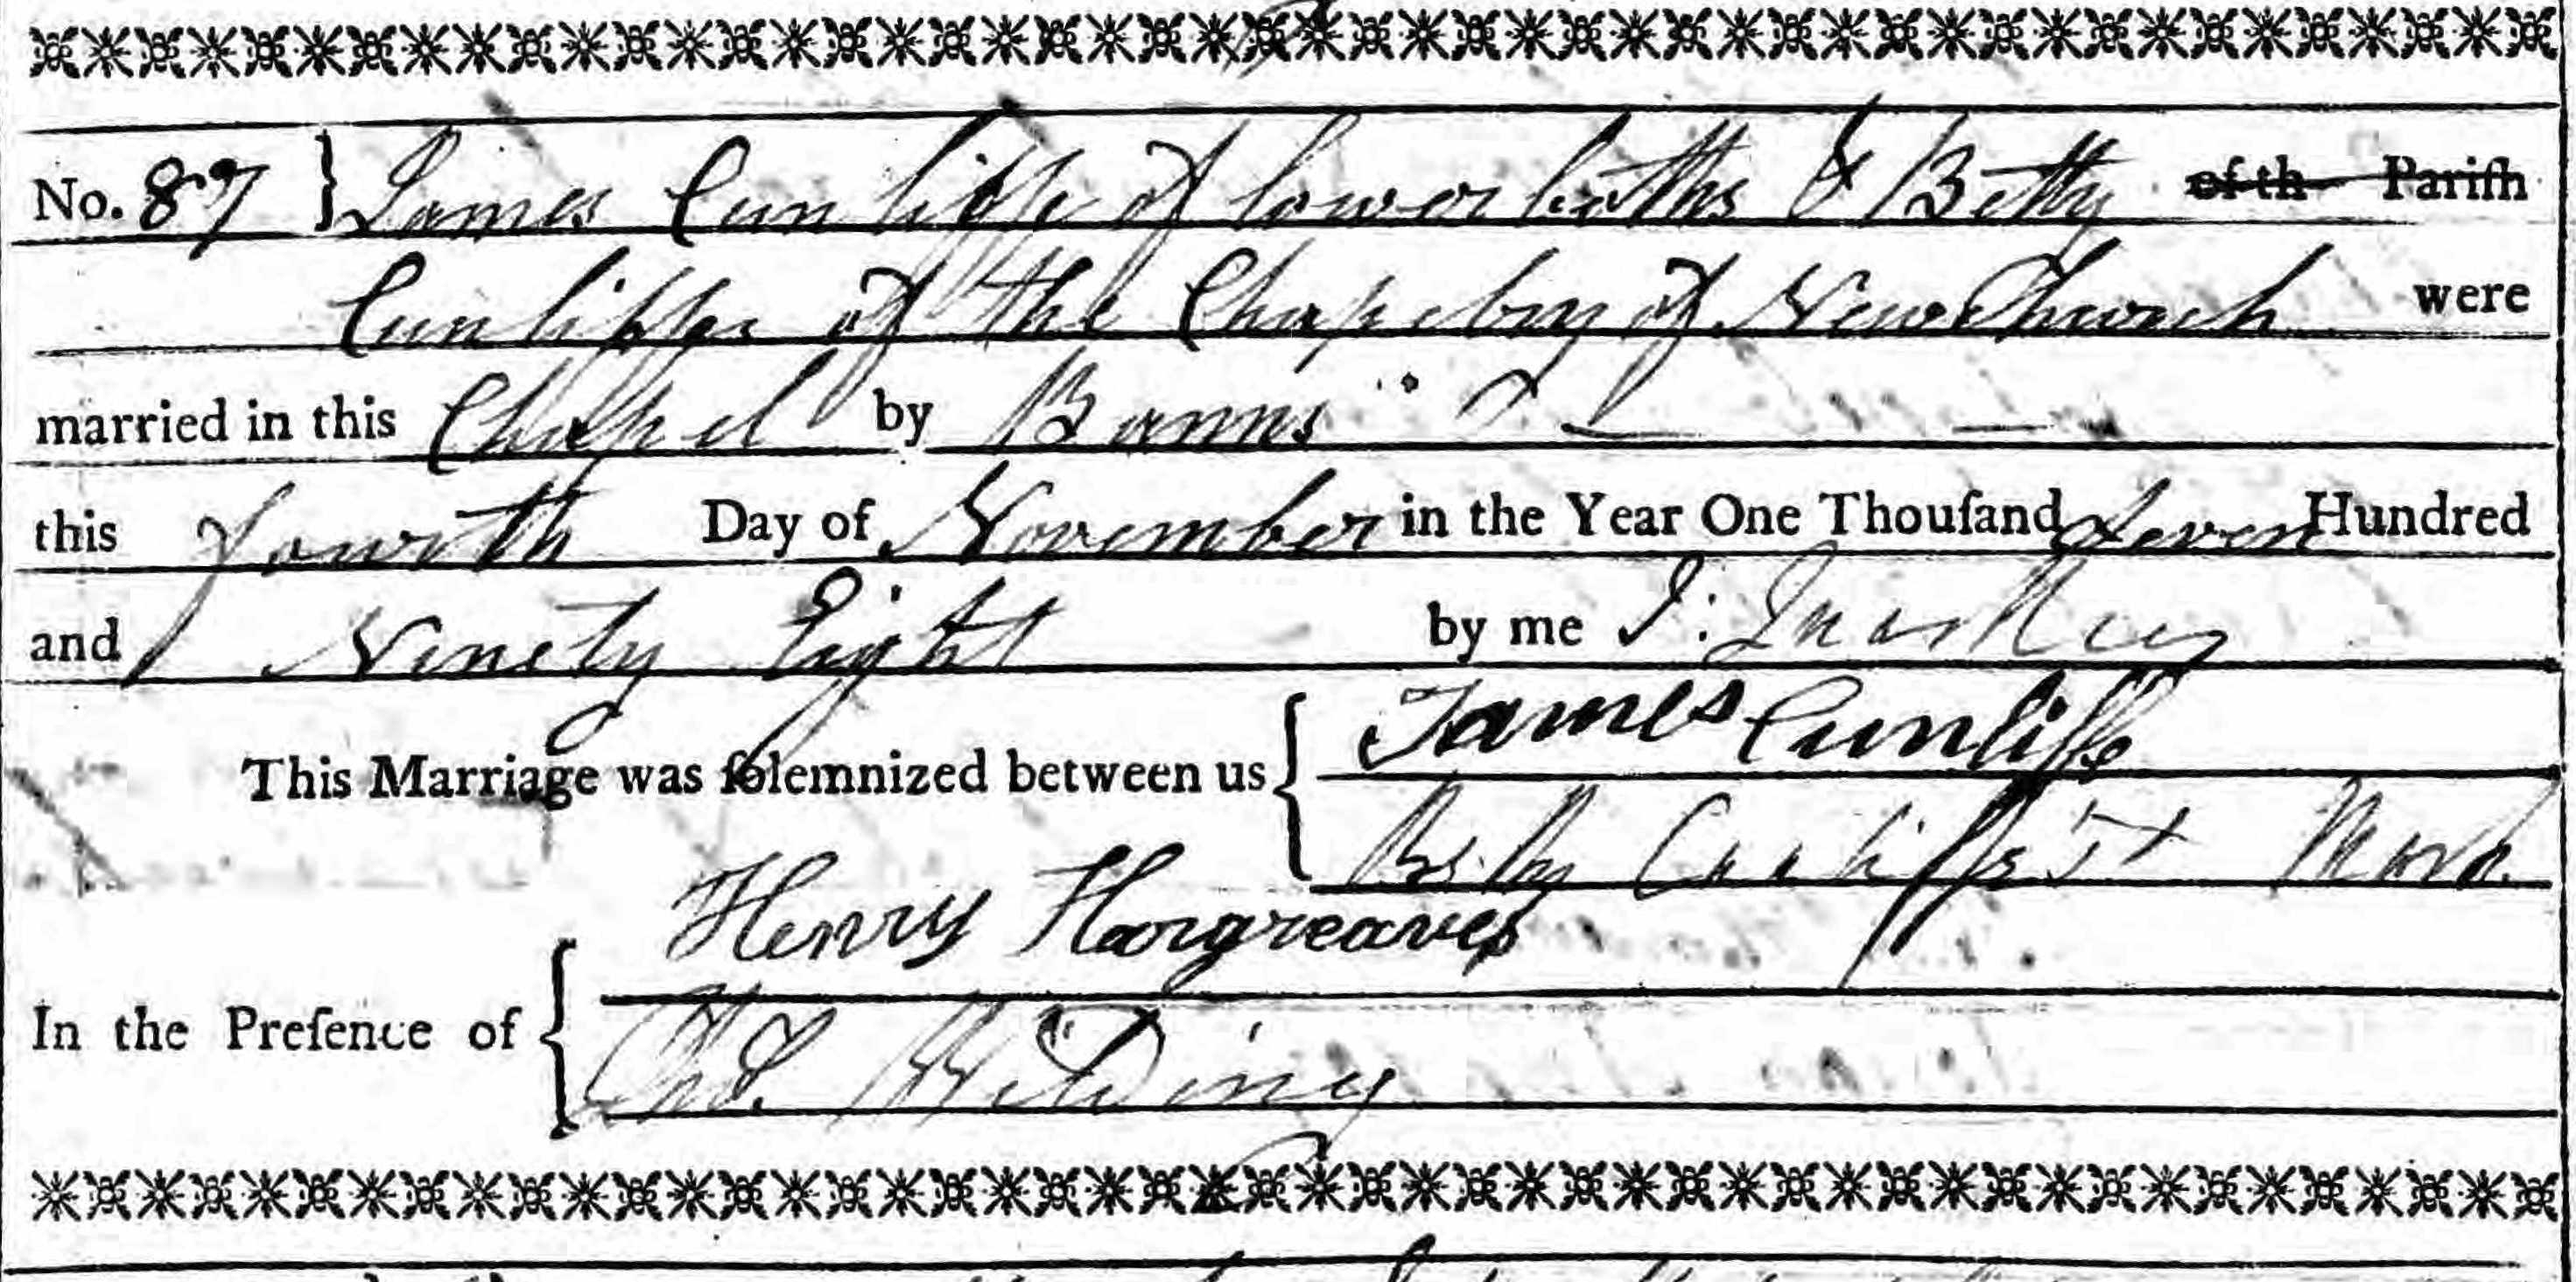 No. 87 } James Cunliffe of Lowerbooths & Betty of th Pariſh
Cunliffe of the Chapelry of NewChurch were
married in this Chapel by Banns
this fourth Day of November in the Year One Thouſand Seven Hundred
and Ninety Eight by me J:
This Marriage was ſolemnized between us { James Cunliffe
Betty Cunliffe's + Mark
In the Preſence of { Henry Hargreaves
Wilding